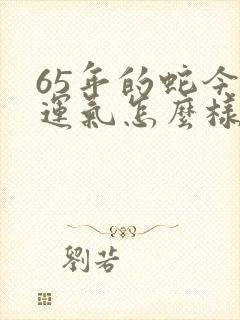 65年的蛇今
運氣怎麼樣
劉若